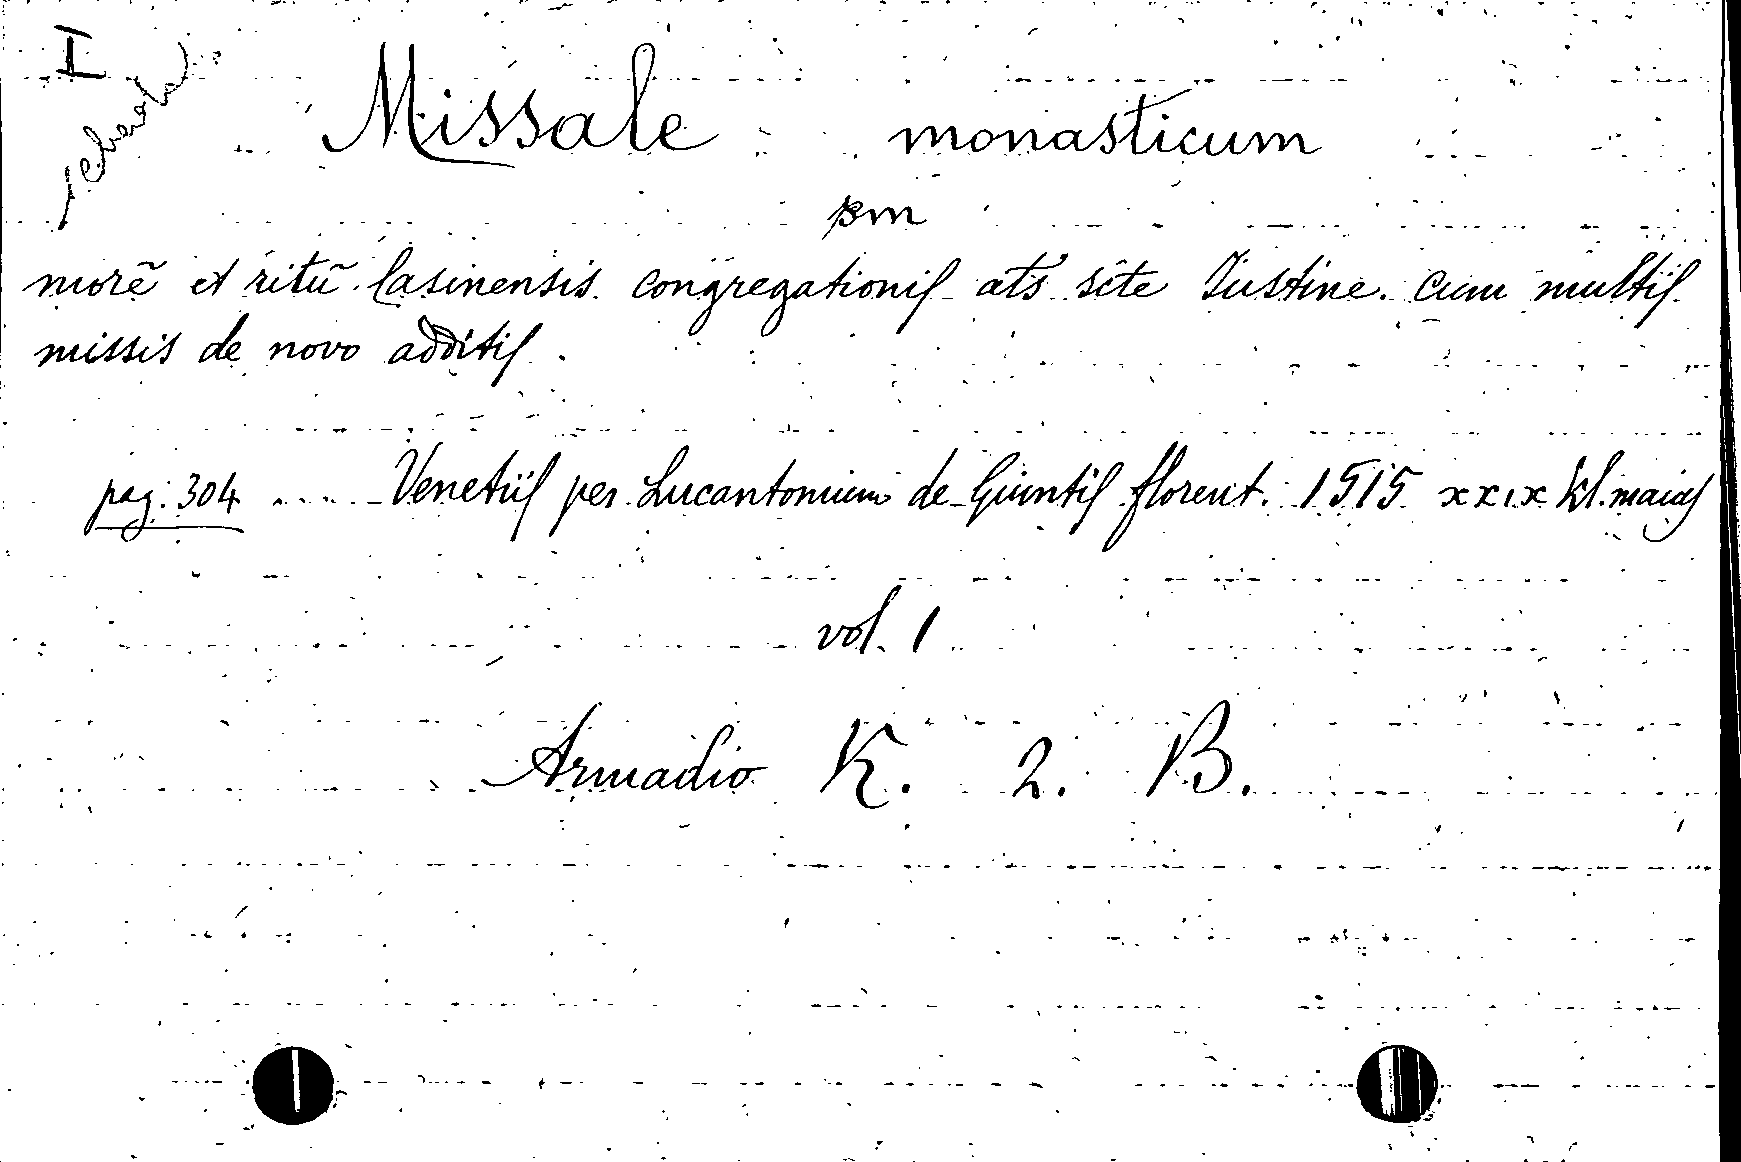 I
scheda
Missale monasticum
sm
morē et ritū Casinensis congregationis ats scte Iustine. cum multis
missis de novo additis.
pag. 304 .... Venetiis per Lucantonium de Giuntis florent. 1515 xxix kl. maias
vol. 1
Armadio K. 2. B.